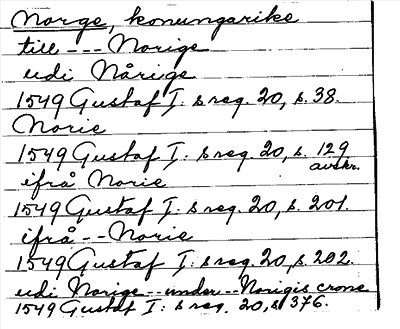 Norge, konungarike
till --- Norige
udi Nårige
1549 Gustaf I: s reg. 20, s. 38.
Norie
1549 Gustaf I: s reg. 20, s. 129
avskr.
ifrå Norie
1549 Gustaf I: s reg. 20, s. 201.
ifrå -- Norie
1549 Gustaf I: s reg. 20, s. 202.
udi Norige -- under -- Norigis crone
1549 Gustaf I: s reg. 20, s 376.